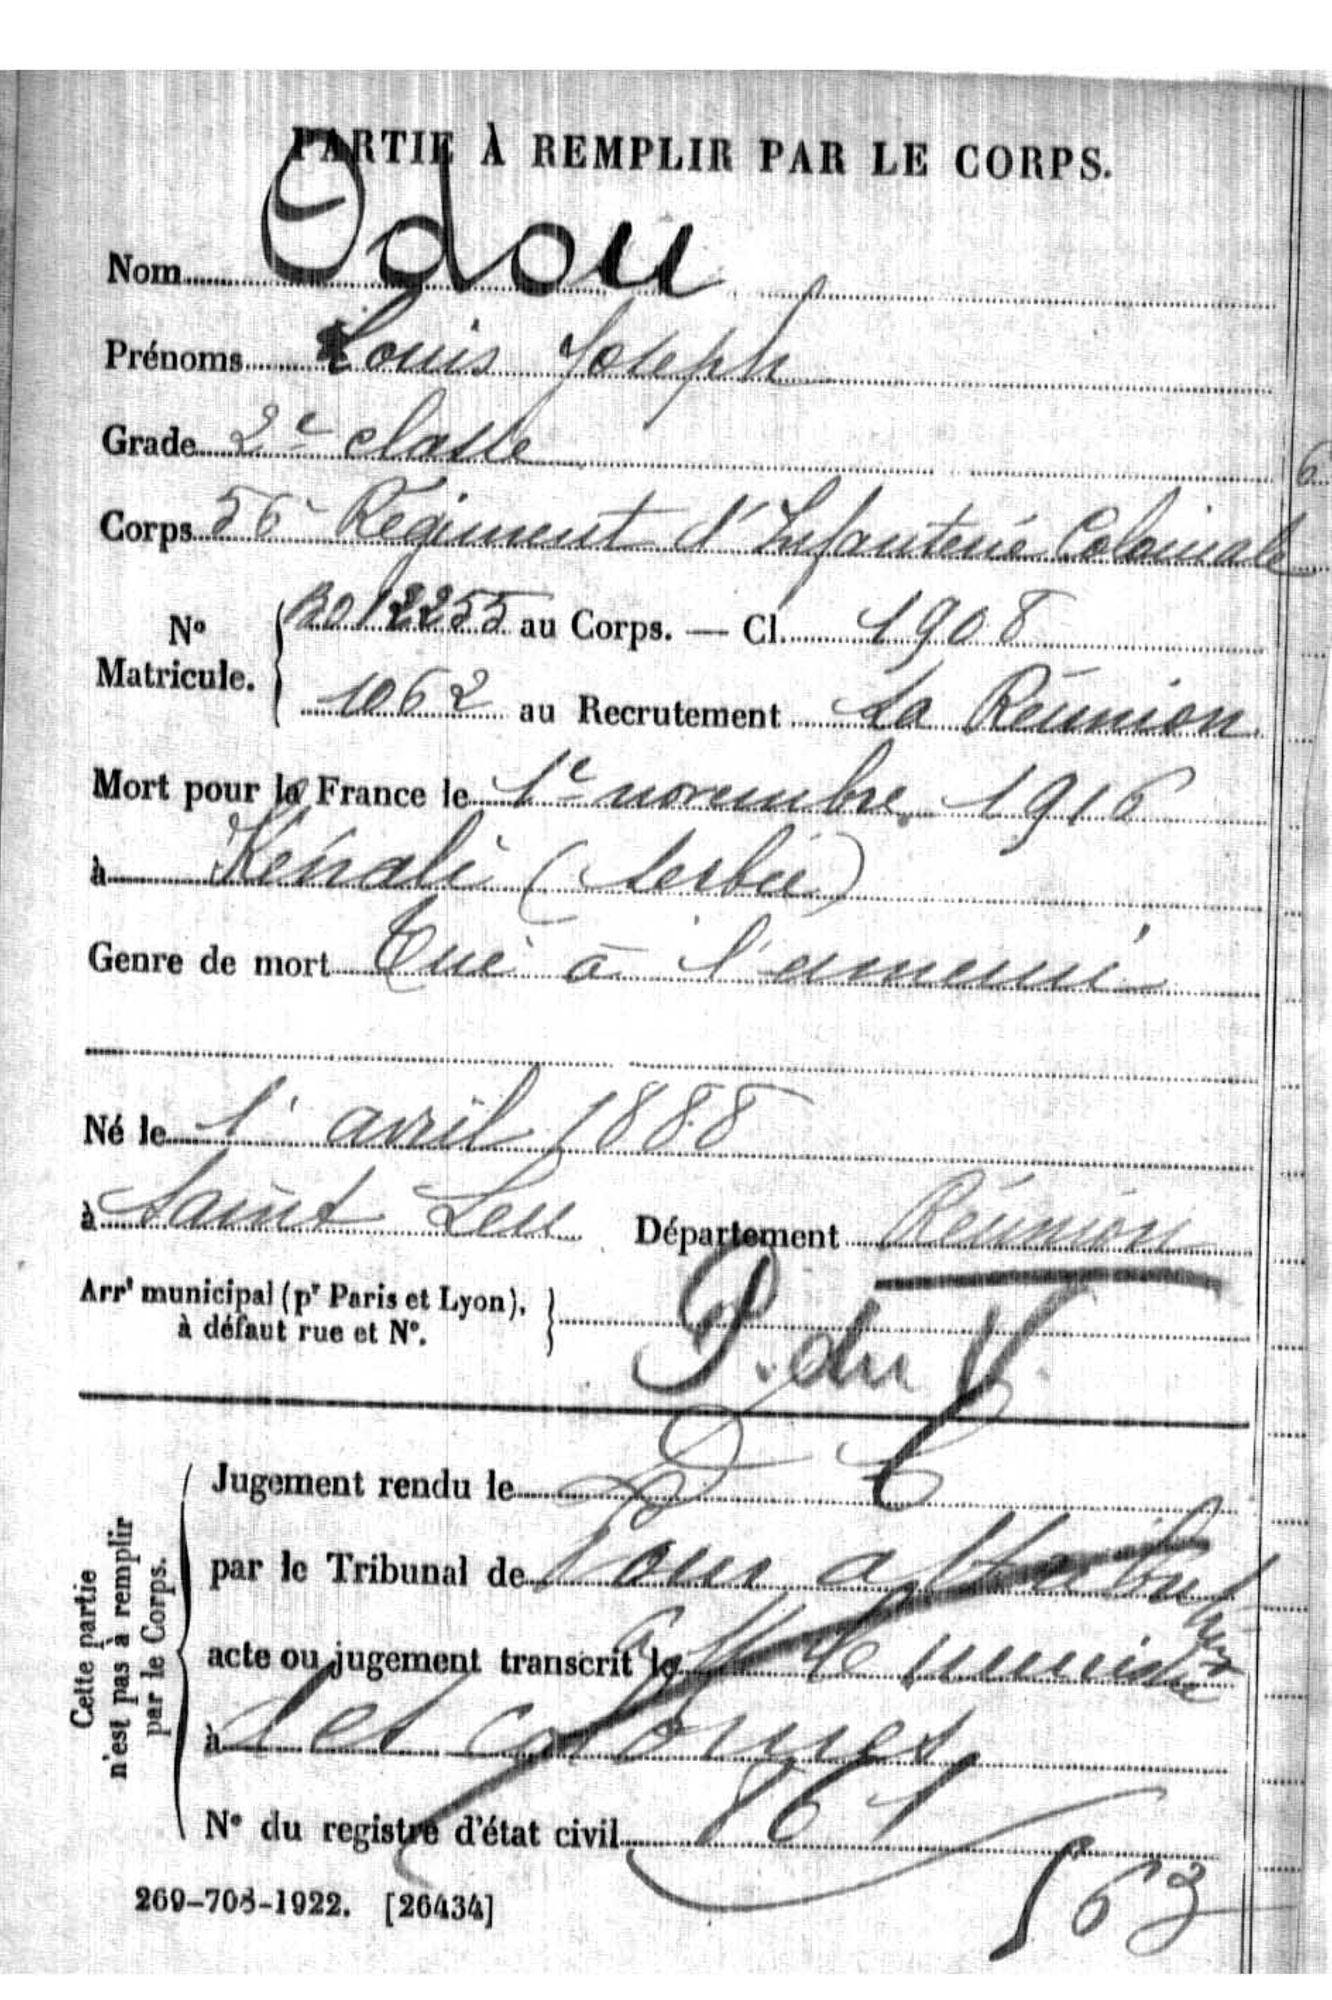 PARTIE À REMPLIR PAR LE CORPS.
Nom Odou
Prénoms Louis Joseph
Grade 2e classe
Corps 56 Régiment d'Infanterie Coloniale
No Matricule. au Corps. — Cl. 1908
1062 au Recrutement La Réunion
Mort pour la France le 1e novembre 1916
à Kénali (Serbie)
Genre de mort Tué à l'ennemi
Né le 1 avril 1888
à Saint Leu Département Réunion
Arrt municipal (pr Paris et Lyon),
à défaut rue et No.
P. du V.
Cette partie
n'est pas à remplir
par le Corps.
Jugement rendu le
par le Tribunal de Pour attribution
acte ou jugement transcrit le à M le ministre
à des colonies
No du registre d'état civil 861
563
269-708-1922. [26434]